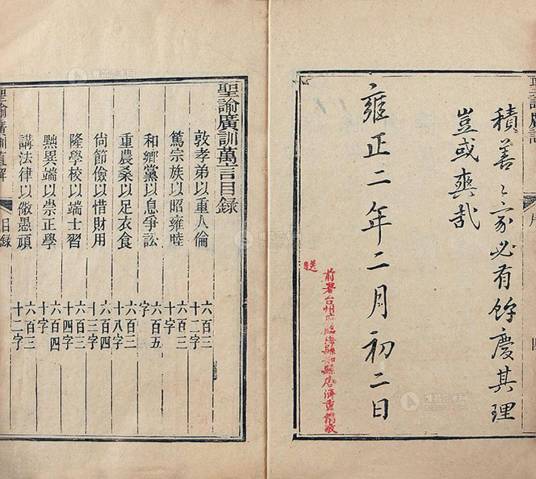 聖諭廣訓
序
四
積善之家必有餘慶其理
豈或爽哉
雍正二年二月初二日
前署台州府臨海縣知縣
聖諭廣訓萬言目錄
敦孝弟以重人倫 六百三十二字
篤宗族以昭雍睦 六百三十字
和鄉黨以息爭訟 六百五字
重農桑以足衣食 六百三十八字
尙節儉以惜財用 六百四十三字
隆學校以端士習 六百三十四字
黜異端以崇正學 六百四十字
講法律以儆愚頑 六百三十二字
聖諭廣訓直解
目錄